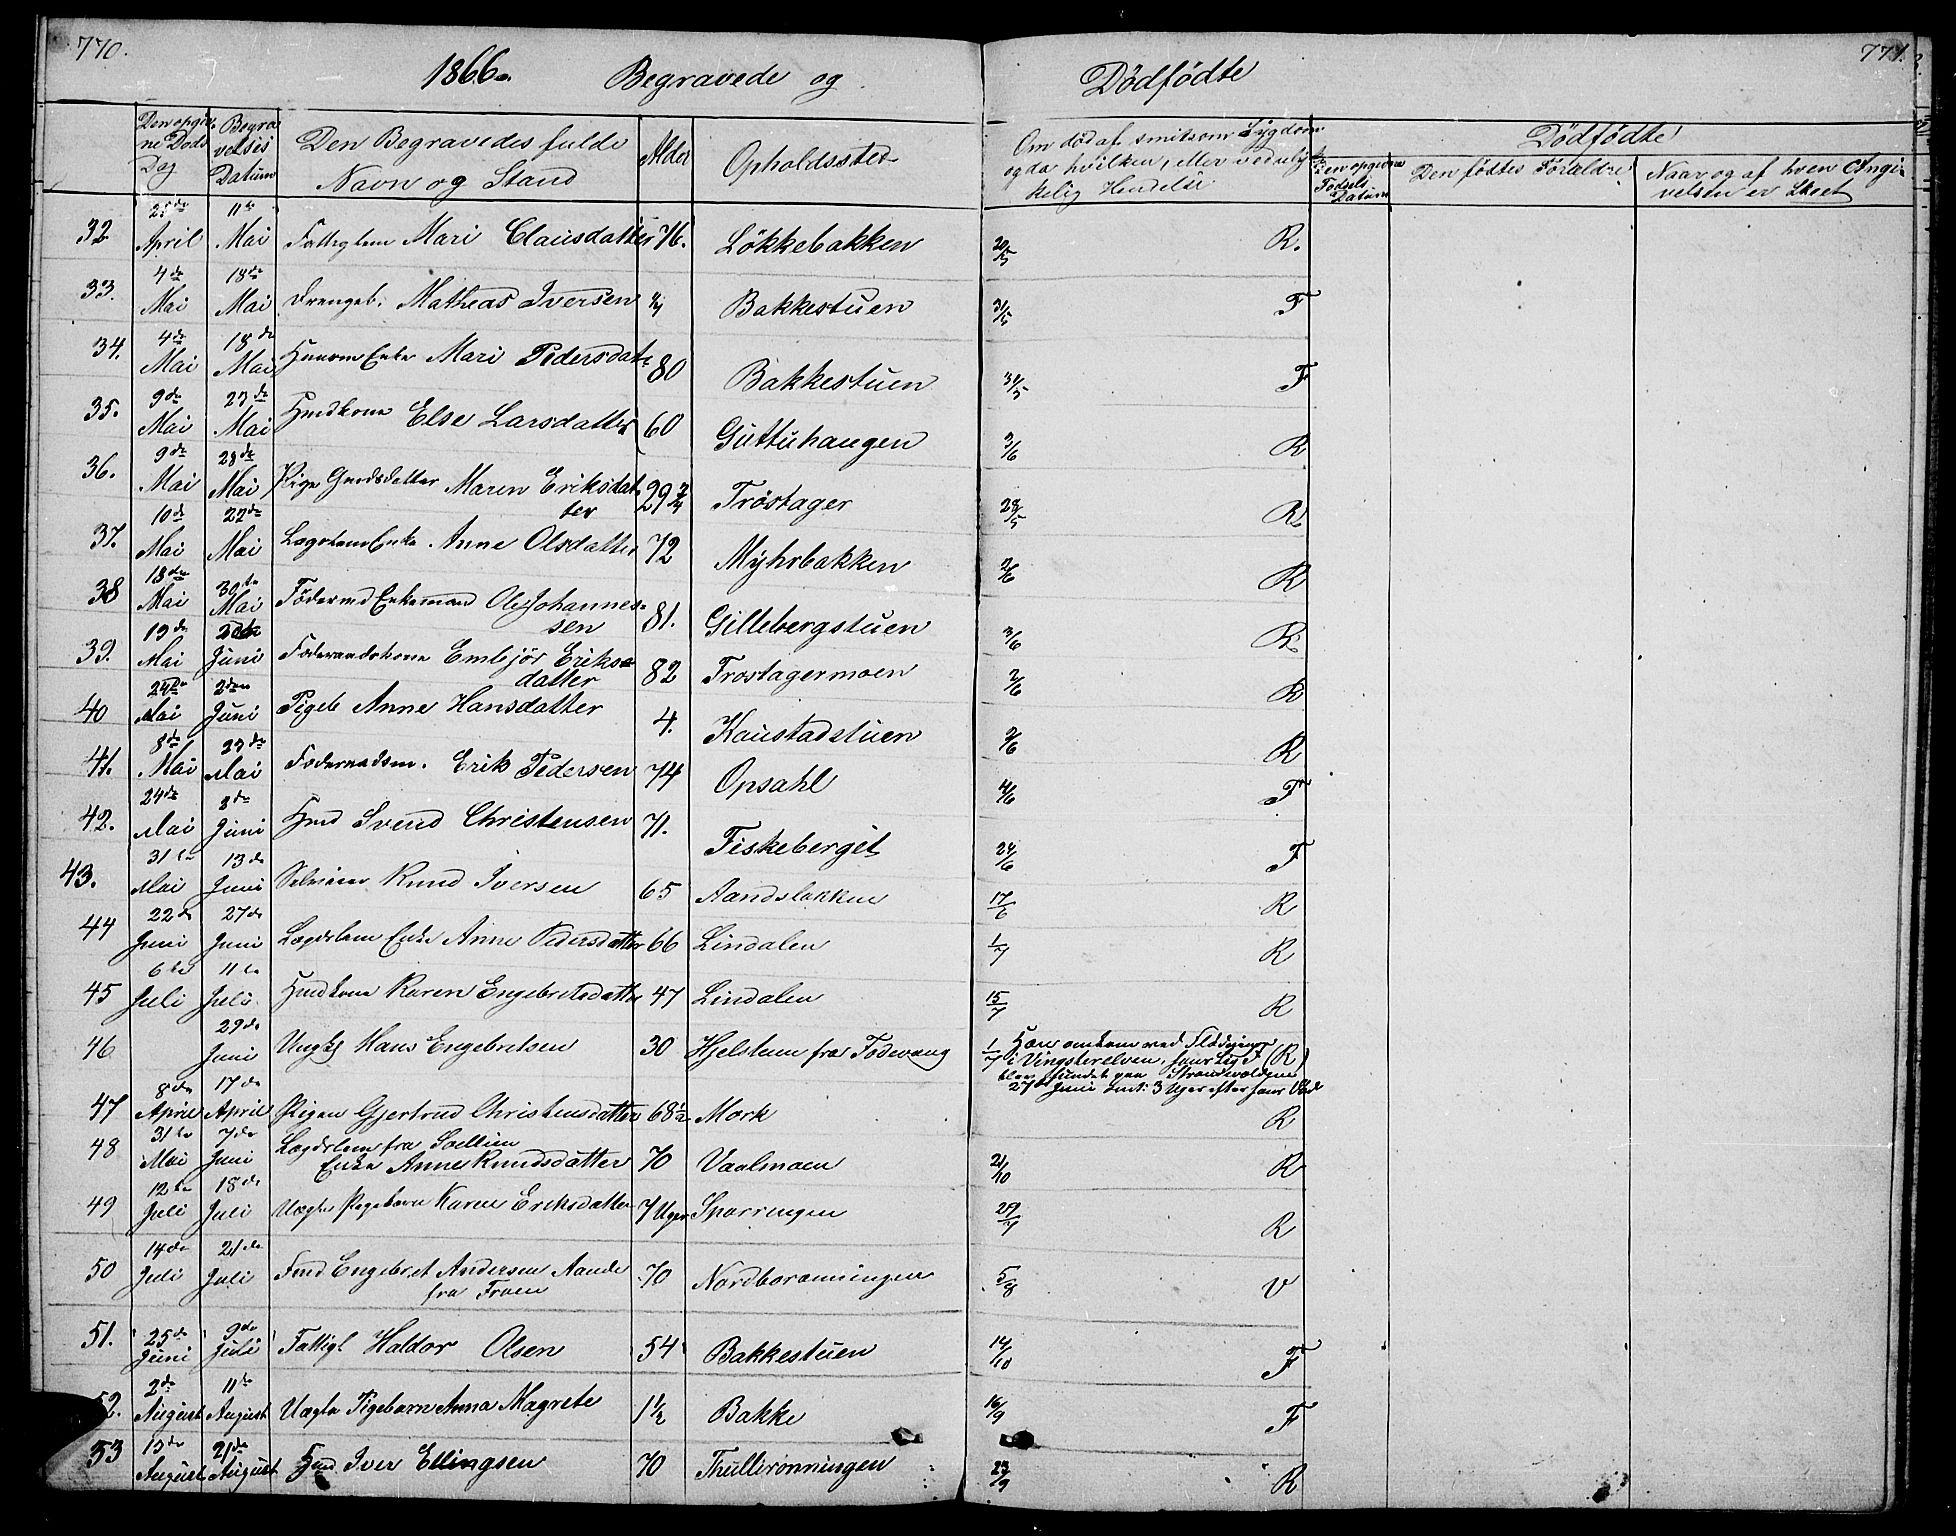 770.
1866. Begravede og
Dödfödte
771.
Den opgiv-
ne Döds
Dag
Begra
velses
Datum
Den Begravedes fulde
Navn og Stand
Alder
Opholdssted
Om död af smitsom Sygdom
og da hvilken, eller ved ulyk-
kelig Hendelse
Dödfödte
Den opgivne
Födsels
Datum
Den födtes Foræld­re
Naar og af hvem Angi-
velsen er Skeet
32 25de April 11te Mai Fattiglem Mari Clausdatter 76. Lökkebakken 20/5 R.
33. 4de Mai 18de Mai Drengeb. Matheas Iversen Bakkestuen 31/5 F
34. 4de Mai 18de Mai Huusm Enke Mari Pedersdat- 80 Bakkestuen 31/5 F
35. 9de Mai 23de Mai Hmdkone Else Larsdatter 60 Guttuhaugen 3/6 R
36. 9de Mai 28de Mai Pige Gaardsdatter Maren Eriksdat
ter 29 3/4 Tröstager 28/5 R.
37. 10de Mai 22de Mai Lægdslem Enke Anne Olsdatter 72 Myhrbakken 2/6 R
38 18de Mai 30te Mai Föderaad Enkemand Ole Johannes-
sen 81. Gillebergstuen 3/6 R.
39. 19de Mai Juni Föderaadskone Embjör Eriks-
datter 82 Trostagermoen 2/6 R
40 24de Mai 2den Juni Pigeb Anne Hansdatter 4. Kaustadstuen 2/6 R
41. 8de Mai 23de Mai Foderaadsm. Erik Pedersen 74 Opsahl 4/6 F
42. 24de Mai 8de Juni Hmd Svend Christensen 71. Fiskeberget 24/6 F
43. 31te Mai 13de Juni Selveier Knud Iversen 65 Aandsløkken 17/6 R
44 22de Juni 27de Juni Lægdslem Enke Anne Pedersdatter 66 Lindalen 1/7 R
45 6te Juli 11te Juli Hmdkone Karen Engebretsdatter 47 Lindalen 15/7 R
46 29de Juni Ungkl Hans Engebretsen 30 Hjelstuen fra Fodevang 1/7 Han omkom ved Flödningen
i Vingsterelven, hans Lig (R)
blev fundet paa Strandvoldene
27de Juni omt: 3 Uger efter hans Död
47 8de April 17de April Pigen Gjertrud Christensdatter 68 1/2 Mork R
48 31te Mai 7de Juni Lægdslem fra Sollien
Enke Anne Knudsdatter 70 Vaalmoen 21/10 R
49 12te Juli 18de Juli Uægte Pigebarn Karen Eriksdatter 7 Uger Sparringen 29/7 R
50 14de Juli 21de Juli Fmd Engebret Andersen Aande
fra Froen 70 Nordborønningen 5/8 V
51. 25de Juni 9de Juli Fattigl Haldor Olsen 54 Bakkestuen 14/10 F
52. 2de August 11te August Uægte Pigebarn Anna Magrete 1 1/2 Bakke 16/9 F
53 13de August 21de August Hmd Iver Ellingsen 70 Thullerønningen 23/9 R